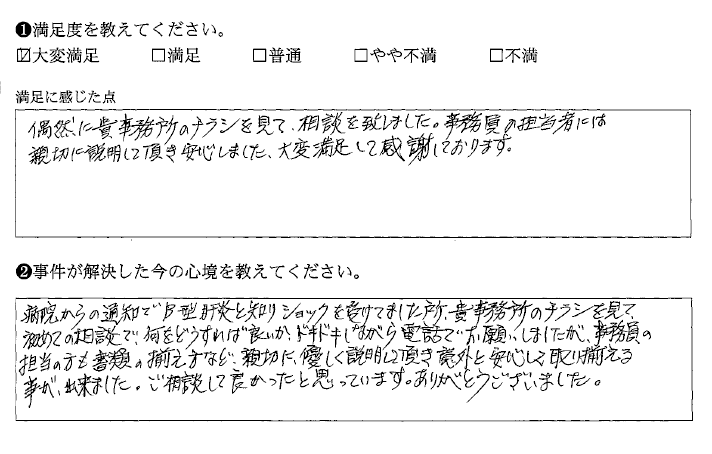 ❶満足度を教えてください。
☑大変満足 □満足 □普通 □やや不満 □不満
満足に感じた点
偶然に貴事務所のチラシを見て、相談を致しました。事務員の担当者には
親切に説明して頂き安心しました、大変満足して感謝しております。
❷事件が解決した今の心境を教えてください。
病院からの通知でB型肝炎と知りショックを受けてました所、貴事務所のチラシを見て、
初めての相談で、何をどうすれば良いか、ドキドキしながら電話でお願いしましたが、事務員の
担当の方も書類の揃え方など、親切に、優しく説明して頂き意外と安心して取り揃える
事が、出来ました。ご相談して良かったと思っています。ありがとうございました。